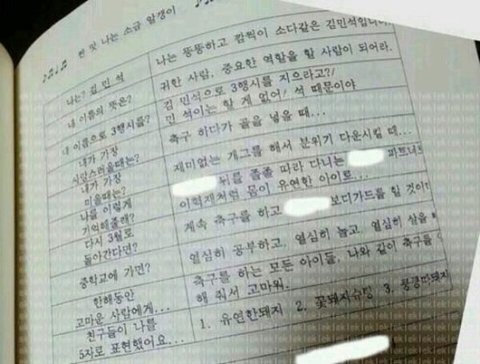 ♪♫♩♪ 짠 맛 나는 소금 알갱이 ♪♫
나는? 김 민 석 나는 뚱뚱하고 깜찍이 소다같은 김민석입니다
내 이름의 뜻은? 귀한 사람, 중요한 역할을 할 사람이 되어라.
내 이름으로 3행시를? 김 민석으로 3행시를 지으라고?/
민 석이는 할 게 없어/ 석 때문이야
내가 가장 사랑스러울때는? 축구 하다가 골을 넣을 때...
내가 가장 미울때는? 재미없는 개그를 해서 분위기 다운시킬 때...
나를 이렇게 기억해줄래? 뒤를 졸졸 따라 다니는 파트너
이학재처럼 몸이 유연한 아이로...
다시 3월로 돌아간다면? 계속 축구를 하고 보디가드를 할 것이
중학교에 가면? 열심히 공부하고, 열심히 놀고, 열심히 삶을
한해동안 고마운 사람에게... 축구를 하는 모든 아이들, 나와 같이 축구를
해 줘서 고마워.
친구들이 나를 5자로 표현했어요... 1. 유연한돼지 2. 꽃돼지슈팅 3.